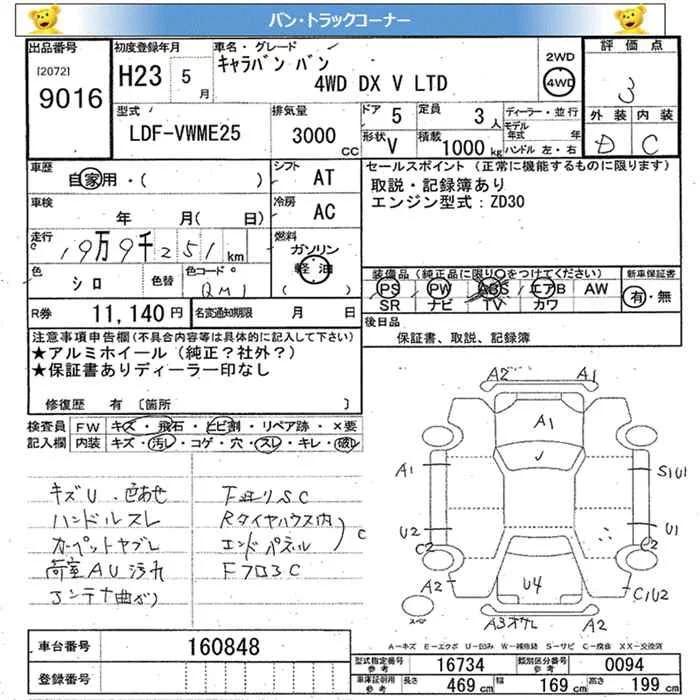 バン・トラックコーナー
出品番号 初度登録年月 車名・グレード 2WD 評価点
[2072] 9016 H23 5月 キャラバン バン 4WD DX V LTD 4WD 3
型式 排気量 ドア 5 定員 3人 ディーラー・並行 外装 内装
LDF-VWME25 3000cc 形状 V 積載 1000kg モデル年式 年 ハンドル 左・右 D C
車歴 自家用・( ) シフト AT セールスポイント (正常に機能するものに限ります)
車検 年 月( 日) 冷房 AC 取説・記録簿あり
エンジン型式:ZD30
走行 19万9千251km 燃料 ガソリン 軽油
色 シロ 色替 色コード QM1 装備品(純正品に限り〇をつけてください) 新車保証書
PS PW ABS エアB AW 有・無
SR ナビ TV カワ
R券 11,140円 名変通知期限 月 日
後日品
保証書、取説、記録簿
注意事項申告欄(不具合内容等は具体的に記入して下さい)
★アルミホイール(純正?社外?)
★保証書ありディーラー印なし
修復歴 有〔箇所 〕
検査員記入欄 FW キズ・飛石・ヒビ割・リペア跡・×要
内装 キズ・汚レ・コゲ・穴・スレ・キレ・破レ
キズU・色あせ 下廻りSC
ハンドルスレ Rタイヤハウス内
カーペットヤブレ エンドパネル C
荷室AU汚れ Fフロ3C
アンテナ曲がり
A2 A1
A1
A1 S1U1
U2 U1
C2 C2
A2 U4 C1U2
A2
A=キズ E=エクボ U=凹み W=補修跡 S=サビ C=腐食 XX=交換済
車台番号 160848
登録番号
型式指定番号 参考 16734 類別区分番号 参考 0094
車庫証明用 参考 長さ 469cm 幅 169cm 高さ 199cm